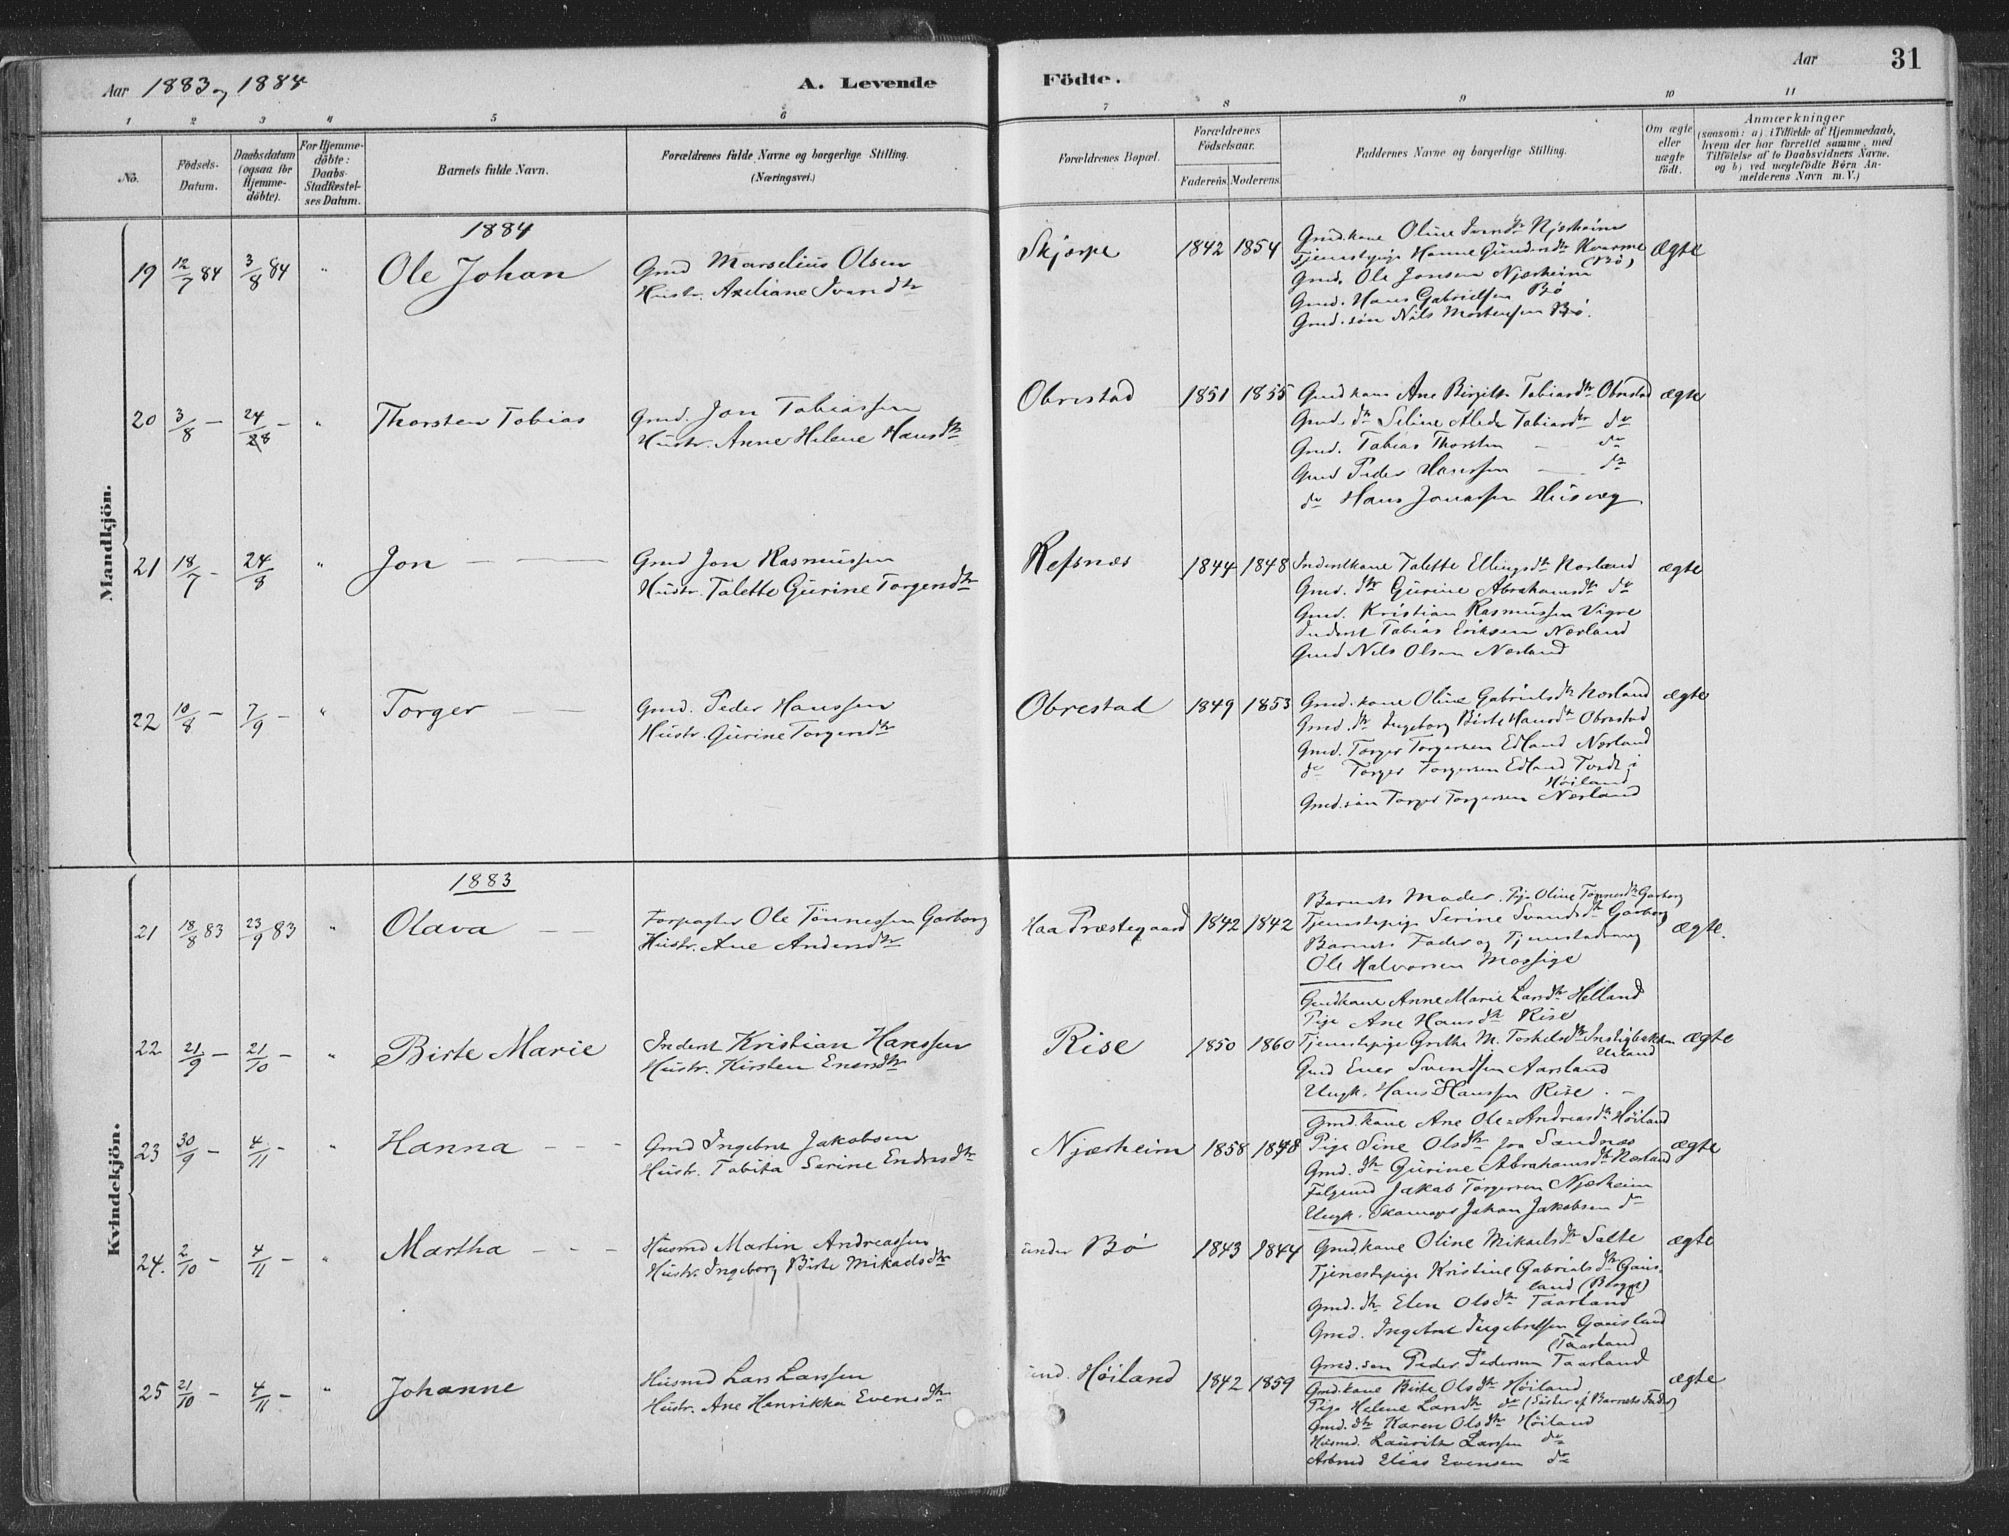 Aar 1883 og 1884
A. Levende
Födte.
Aar
31
1 2 3 4 5 6 7 8 9 10 11
No.
Födsels-Datum.
Daabsdatum (ogsaa for Hjemme-döbte).
For Hjemme-döbte: Daabs-Stadfæstel-ses Datum.
Barnets fulde Navn.
Forældrenes fulde Navne og borgerlige Stilling.
(Næringsvei.)
Forældrenes Bopæl.
Forældrenes Födselsaar.
Faderens. Moderens.
Faddernes Navne og borgerlige Stilling.
Om ægte eller uægte födt.
Anmærkninger
(saasom: a) i Tilfælde af Hjemmedaab,
hvem der har forrettet samme, med
Tilföielse af to Daabsvidners Navne.
og b) ved uægtefödte Börn An-
melderens Navn m. V.)
Mandkjön.
1884
19 12/7 84 3/8 84 " Ole Johan
Gmd Marselius Olsen
Hustr. Axeliane Ivarsdtr
Skjærpe 1842 1854
Gmd.kone Oline Iversdtr Njærheim
Tjenestepige Hanne Gundersdtr Kvarme (Bö)
Gmd. Ole Jonsen Njærheim
Gmd. Hans Gabrielsen Bö
Gmd.sön Nils Mortensen Bö.
Ægte
20 3/8 - 24/8 - " Thorsten Tobias
Gmd. Jon Tobiassen
Hustr. Anne Helene Hansdtr
Obrestad 1851 1855
Gmdkone Ane Birgitte Tobiasdtr Obrestad ægte
Gmd. dtr Seline Alede Tobiasdtr do
Gmd. Tobias Thorsten - do
Gmd Peder Hanssen - do
do Hans Jonassen Husveg
21 18/7 - 24/8 " Jon - -
Gmd Jon Rasmussen
Hustr. Talette Gurine Torgersdtr
Refsnæs 1844 1848
Inderstkone Talette Ellingsdtr Nærland ægte
Gmd. dtr Gurine Abrahamsdtr do
Gmd. Kristian Rasmussen Vigre
Inderst Tobias Eriksen Nærland
Gmd Nils Olsen Nærland
22 10/8 - 7/9 - " Torger - -
Gmd. Peder Hanssen
Hustr. Gurine Torgersdtr
Obrestad 1849 1853
Gmd.kone Oline Gabrielsdtr Nærland ægte
Gmd. dtr Ingeborg Birte Hansdtr Obrestad
Gmd. Torger Torgersen Edland Nærland
do Torger Torgersen Edland Tvedt i
Höiland
Gmd.sön Torger Torgersen Nærland
Kvindekjön.
1883
21 18/8 83 23/9 83 " Olava - -
Forpagter Ole Tönnessen Garborg
Hustr. Ane Andersdtr
Haa Præstegaard 1842 1842
Barnets Moder. Pige Oline Tönnesdtr Garborg
Tjenestepige Serine Svendsdtr Garborg
Barnets Fader og Tjenestedreng
Ole Halvorsen Mossige
ægte.
22 21/9 - 21/10 - " Birte Marie
Inderst Kristian Hanssen
Hustr. Kirsten Enersdtr
Rise 1850 1860
Gmdkone Anne Marie Larsdtr Helland
Pige Ane Hansdtr Rise
Tjenestepige Grethe M. Torkelsdtr Instigbakken ægte
Gmd Ener Svendsen Aarsland
Ungk. Hans Hanssen Rise. -
23 30/9 - 4/11 - " Hanna - - -
Gmd Ingebret Jakobsen
Hustr. Tobita Serine Endresdtr
Njærheim 1858 1848
Gmd.kone Ane Ole=Andreasdtr Höiland
Pige Sine Olsdtr fra Sandnæs ægte
Gmd. dtr Gurine Abrahamsdtr Nærland
Folgemd Jakob Torgersen Njærheim
Ungk. Johan Jakobsen do
24. 2/10 - 4/11 - " Martha - - -
Husmd Martin Andreassen
Hustr. Ingeborg Birte Mikaelsdtr
under Bö 1843 1844
Gmdkone Oline Mikaelsdtr Salte ægte
Tjenestepige Kristine Gabrielsdtr Gaus-
land
Gmd. dtr Elen Olsdtr Taarland
Gmd. Ingebret Ingebretsen Gausland
(Taarland
Gmd. sön Peder Pedersen Taarland
25 21/10 - 4/11 - " Johanne
Husmd Lars Larssen
Hustr. Ane Henrikka Evensdtr
und. Höiland 1842 1859
Gmd.kone Birte Olsdtr Höiland ægte
Pige Helene Larsdtr do (Söster af Barnets Fader)
Gmd. dtr Karen Olsdtr Höiland
Husmd. Lauritz Larssen do
Arbmd Elias Evensen do